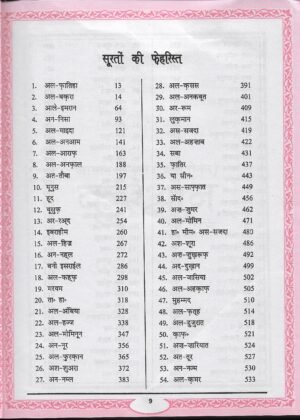 सूरतों की फ़ेहरिस्त
1. अल-फ़ातिहा 13
2. अल-बक़रा 14
3. आले-इमरान 64
4. अन-निसा 93
5. अल-माइदा 121
6. अल-अनआम 141
7. अल-आराफ़ 163
8. अल-अनफ़ाल 188
9. अत-तौबा 197
10. यूनुस 215
11. हूद 227
12. यूसुफ़ 241
13. अर-रअ्द 254
14. इबराहीम 260
15. अल-हिज्र 267
16. अन-नहल 272
17. बनी इसराईल 286
18. अल-कहफ़ 298
19. मरयम 310
20. ता० हा० 318
21. अल-अंबिया 328
22. अल-हज्ज 338
23. अल-मोमिनून 347
24. अन-नूर 356
25. अल-फ़ुरक़ान 365
26. अश-शुअरा 372
27. अन-नम्ल 383
28. अल-क़सस 391
29. अल-अनकबूत 401
30. अर-रूम 409
31. लुक़मान 415
32. अस-सजदा 419
33. अल-अहज़ाब 422
34. सबा 431
35. फ़ातिर 437
36. या सीन० 443
37. अस-साफ़्फ़ात 449
38. सॉद० 456
39. अज़-ज़ुमर 462
40. अल-मोमिन 471
41. हा० मीम० अस-सजदा 480
42. अश-शूरा 486
43. अज़-ज़ुख़रुफ़ 492
44. अद-दुख़ान 499
45. अल-जासिया 502
46. अल-अहक़ाफ़ 505
47. मुहम्मद 510
48. अल-फ़तह 514
49. अल-हुजुरात 518
50. क़ाफ़० 521
51. अज़-ज़ारियात 524
52. अत-तूर 527
53. अन-नज्म 530
54. अल-क़मर 533
9